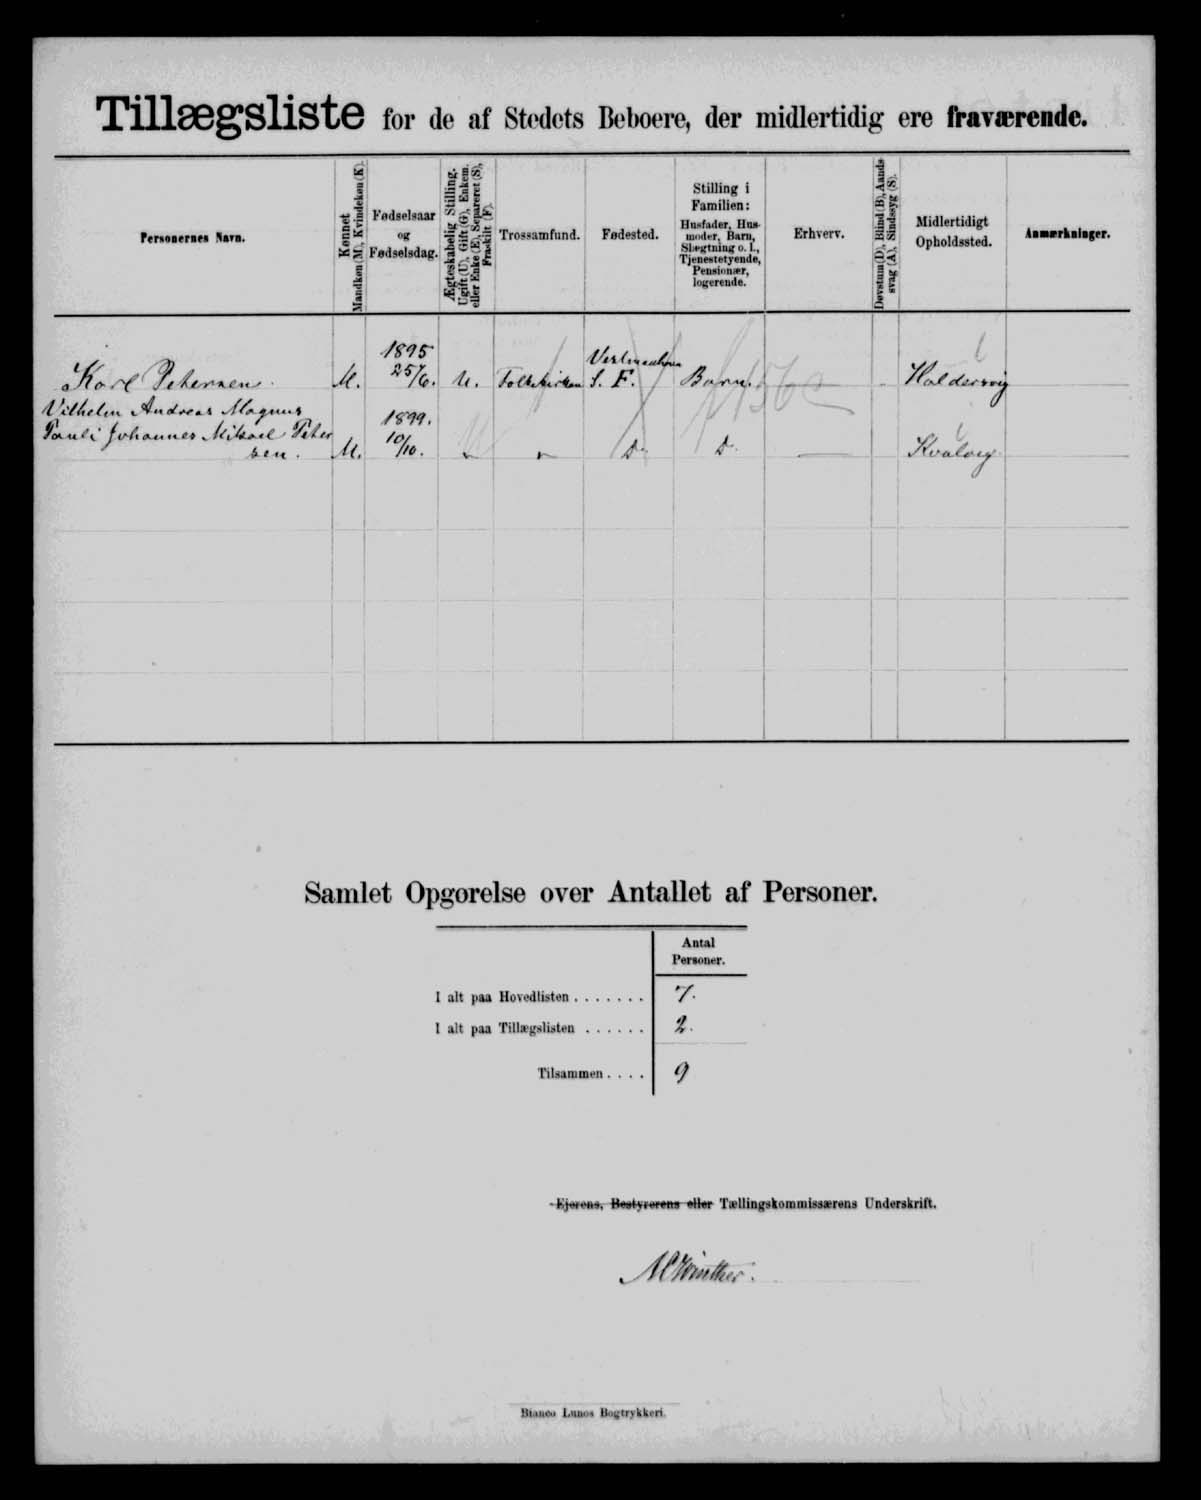 Tillægsliste for de af Stedets Beboere, der midlertidig ere fraværende.
Personernes Navn.
Kønnet
Mandkøn (M), Kvindekøn (K).
Fødselsaar
og
Fødselsdag.
Ægteskabelig Stilling.
Ugift (U), Gift (G), Enkem.
eller Enke (E), Separeret (S),
Fraskilt (F).
Trossamfund.
Fødested.
Stilling i
Familien:
Husfader, Hus-
moder, Barn,
Slægtning o. l.,
Tjenestetyende,
Pensionær,
logerende.
Erhverv.
Døvstum (D), Blind (B), Aands-
svag (A), Sindssyg (S).
Midlertidigt
Opholdssted.
Anmærkninger.
1895
Karl Petersen. M. 25/6. U. Folkekirken S. F. Barn. Haldersvig
Vilhelm Andreas Magnus
1899.
Pauli Johannes Mikael Peter
sen. M. 10/10. D. D. Kvalvig
Samlet Opgørelse over Antallet af Personer.
Antal
Personer.
I alt paa Hovedlisten . . . . . . . 7.
I alt paa Tillægslisten . . . . . . 2.
Tilsammen . . . . 9
Ejerens, Bestyrerens eller Tællingskommissærens Underskrift.
Winther.
Bianco Lunos Bogtrykkeri.